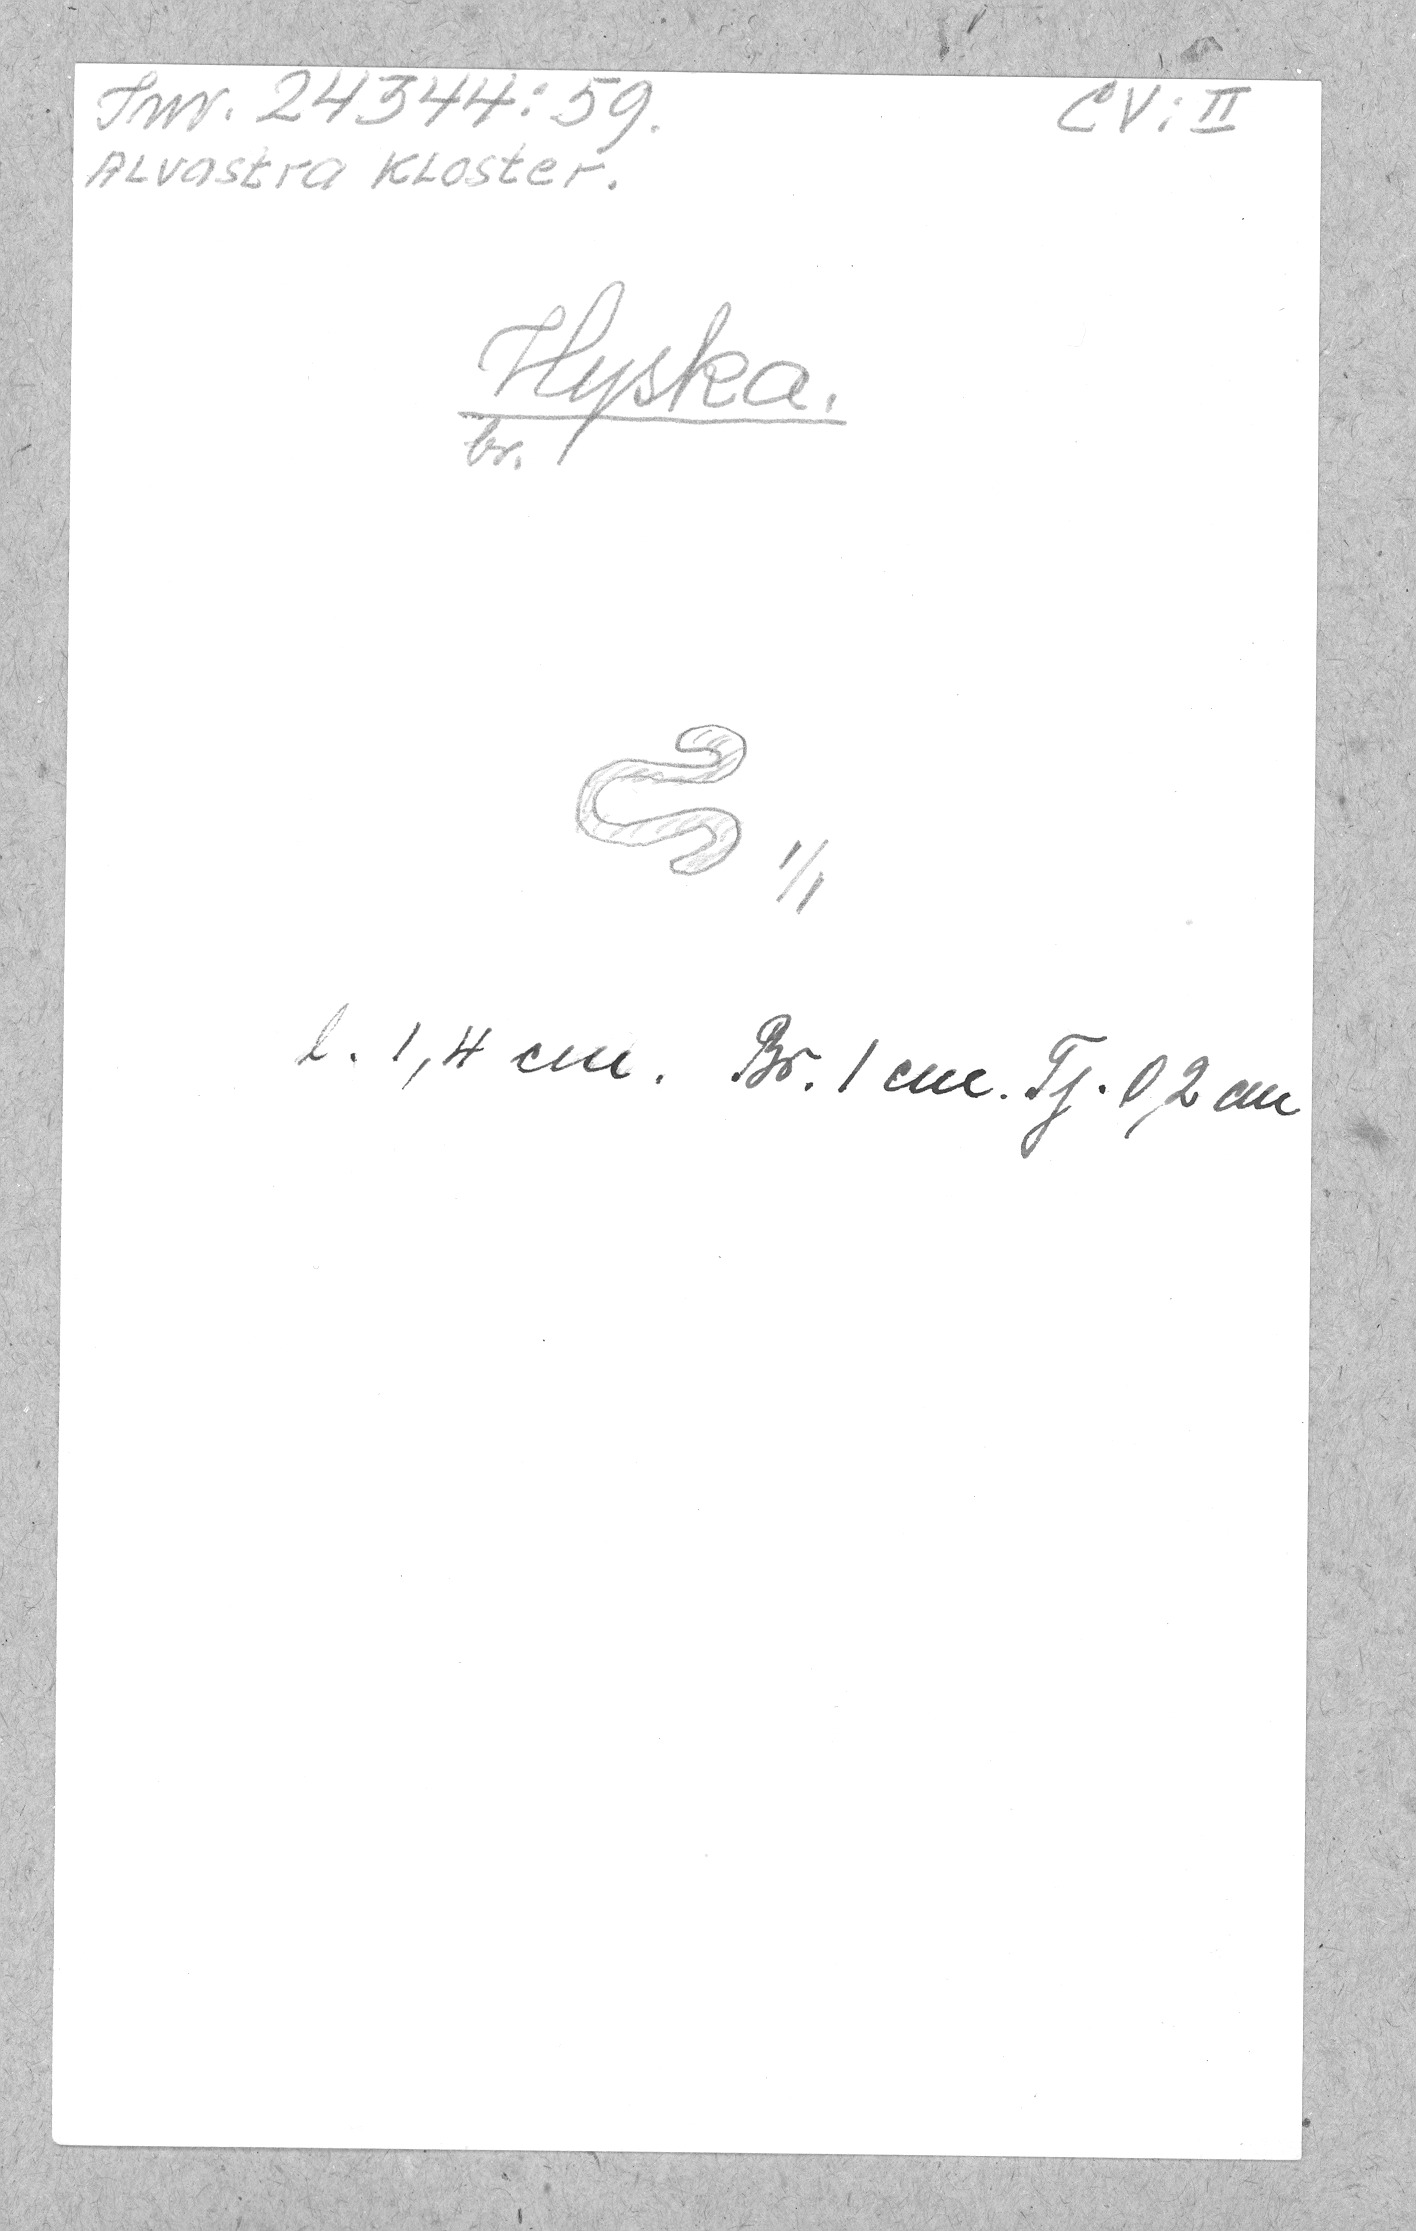 Inv. 24344:59. CV:II
Alvastra Kloster.
Hyska.
br.
1/1
l. 1,4 cm. Br. 1 cm. Tj. 0,2 cm